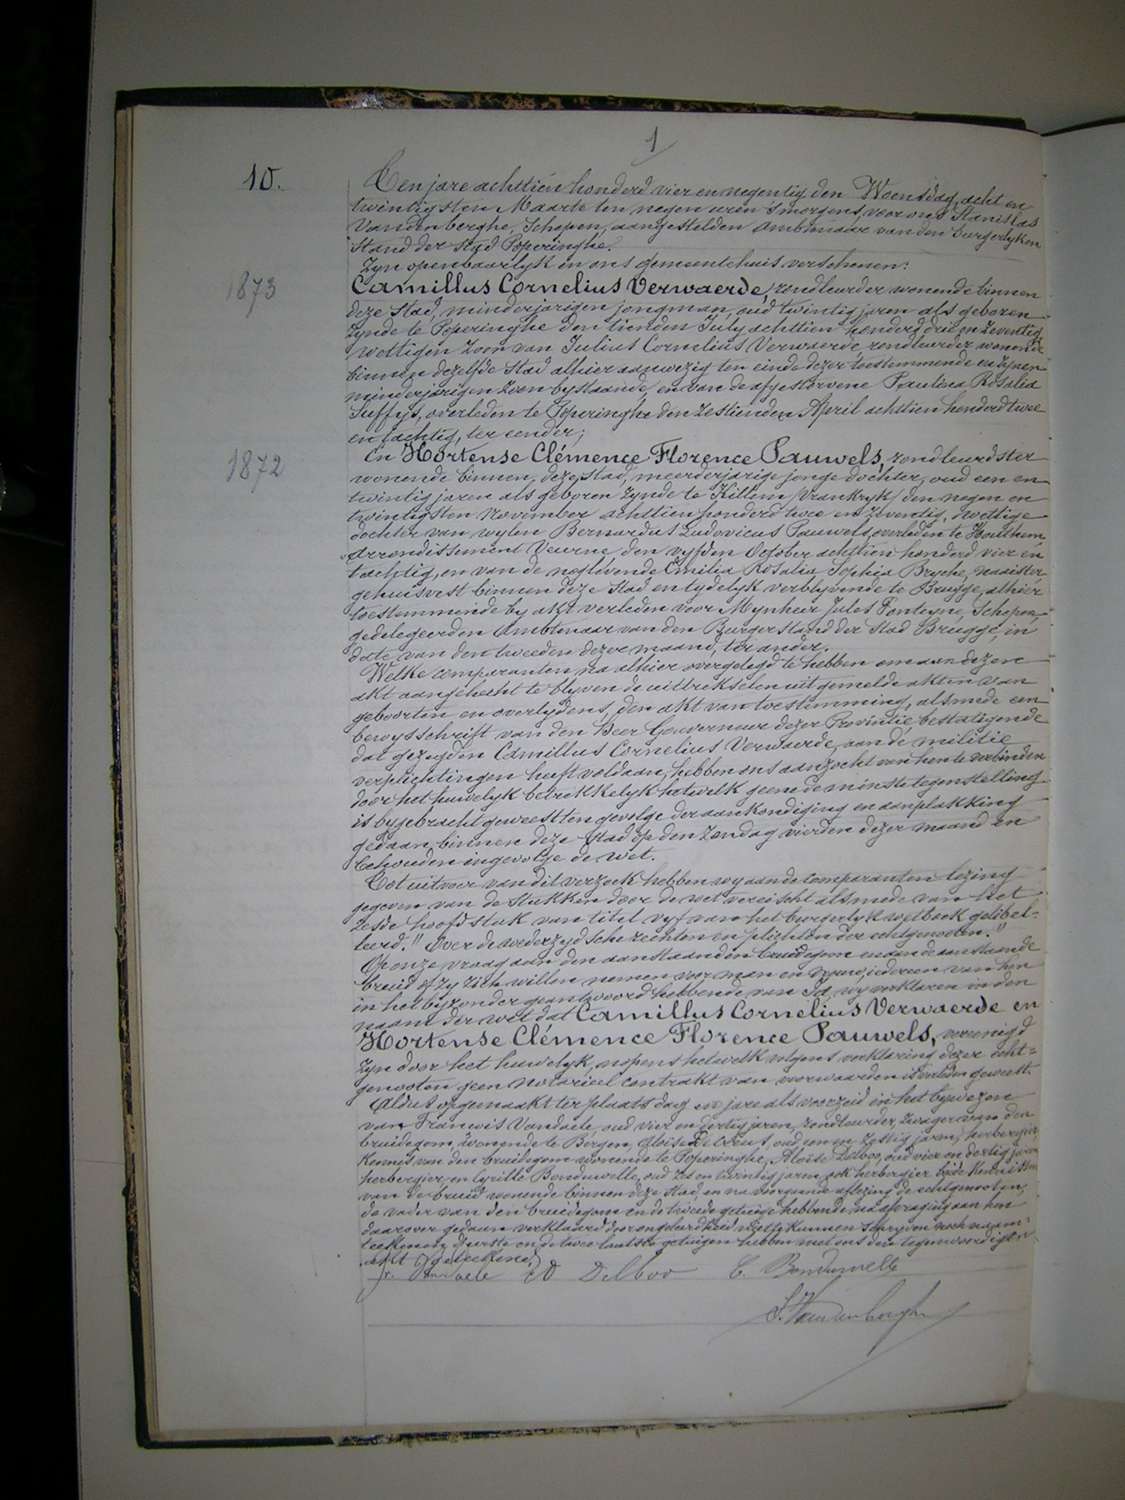 1
10.
Een jare achttien honderd vier en negentig den Woensdag, acht en
twintigsten Maarte ten negen uren smorgens, voor ons Stanislas
Vandenberghe, Schepen, aangestelden Ambtenaar van den burgerlyken
Stand der stad Poperinghe.
Zyn openbaarlyk in ons gemeentehuis verschenen:
1873
Camillus Cornelius Verwaerde, rondleurder wonende binnen
deze Stad, minderjarigen jongman, oud twintig jaren als geboren
zynde te Poperinghe den tienden July achttien honderd drie en zeventig
wettigen zoon van Julius Cornelius Verwaerde, rondleurder wonende
binnen dezelfde Stad alhier aanwezig ten einde dezer toestemmende en zynen
minderjarigen zoon bystaande, en van de afgestorvene Paulina Rosalia
Suffys, overleden te Poperinghe den zestienden April achttien honderd twee
en tachtig, ter eender;
1872
En Hortense Clémence Florence Pauwels, rondleurdster
wonende binnen deze Stad, meerderjarige jonge dochter, oud een en
twintig jaren als geboren zynde te Killem (Vrankryk) den negen en
twintigsten November achttien honderd twee en zeventig, wettige
dochter van wylen Bernardus Ludovicus Pauwels, overleden te Houthem,
Arrondissement Veurne, den vyfden October achttien honderd vier en
tachtig, en van de naglevende Emilia Rosalia Sophia Bryche, naaister
gehuisvest binnen deze Stad en tydelyk verblyvende te Brugge, alhier
toestemmende by akt verleden voor Mynheer Jules Fonteyne, Schepen,
gedelegeerden Ambtenaar van den Burgerstand der Stad Brugge, in
date van den tweeden dezer maand, ter ander;
Welke comparanten, na alhier overgelegd te hebben om aan dezen
akt aangehecht te blyven de uittrekselen uit gemelde akten van
geboorten en overlydens, den akt van toestemming, alsmede een
bewysschrift van den Heer Gouverneur dezer Provintie bestatigende
dat gezegden Camillus Cornelius Verwaerde, aan de militie
verplichtingen heeft voldaan, hebben ons aanzocht van hen te verbinden
door het huwelyk betrekkelyk hetwelk geene de minste tegenstelling
is bygebracht geweest ten gevolge der aankondiging en aanplakking
gedaan binnen deze Stad op den Zondag vierden dezer maand en
behouden ingevolge de wet.
Tot uitvoer van dit verzoek hebben wy aan de comparanten lezing
gegeven van de stukken door de wet vereischt alsmede van het
zesde hoofdstuk van titel vyf van het burgerlyk wetboek gelibel-
leerd. "Over de wederzydsche rechten en plichten der echtgenooten."
Op onze vraag aan den aanstaanden bruidegom en aan de aanstaande
bruid of zy zich willen nemen voor man en vrouw, iedereen van hen
in het byzonder geantwoord hebbende van Ja, wy verklaren in den
naam der wet dat Camillus Cornelius Verwaerde en
Hortense Clémence Florence Pauwels, vereenigd
zyn door het huwelyk, nopens hetwelk volgens verklaring dezer echt-
genooten geen Notarieel contrakt van voorwaarden is verleden geweest.
Aldus opgemaakt ter plaats dag en jare als voorzeid in het bywezen
van François Vandaele, oud vier en dertig jaren, rondleurder, zwager van den
bruidegom, wonende te Bergen, oud een en zestig jaren, herbergier
kennis van den bruidegom wonende te Poperinghe, Aloïse Delboo, oud vier en dertig jaren
herbergier en Cyrille Bonduwelle, oud zes en twintig jaren, ook herbergier beide kennissen
van de bruid wonende binnen deze Stad, en na voorgaande aflezing de echtgenooten,
de vader van den bruidegom en de tweede getuige hebbende, na afvraging aan hen
daarover gedaan verklaard door ongeleerdheid niet te kunnen schryven noch naam-
teekenen, d'eerste en de twee laatste getuigen hebben met ons dezen tegenwoordigen
akt geteekend.
fr. Vandaele A Delboo C. Bonduwelle
S. Vandenberghe